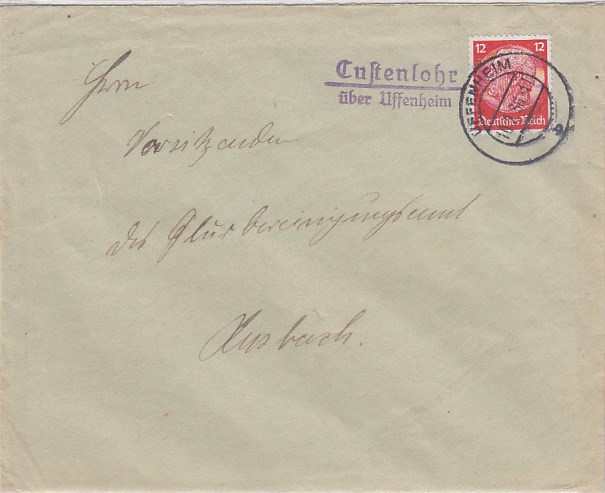 Custenlohr
über Uffenheim
12 12
Deutsches Reich
UFFENHEIM
Herrn
Vorsitzenden
des Flurbereinigungsamt
Ansbach.